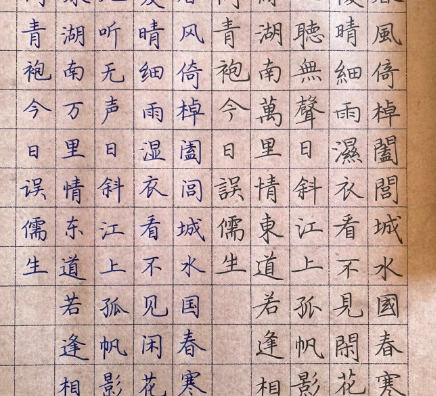 風倚棹闔閭城水國春寒
晴細雨濕衣看不見閑花
聽無聲日斜江上孤帆影
湖南萬里情東道若逢相
青袍今日誤儒生
风倚棹阖闾城水国春寒
晴细雨湿衣看不见闲花
听无声日斜江上孤帆影
湖南万里情东道若逢相
青袍今日误儒生